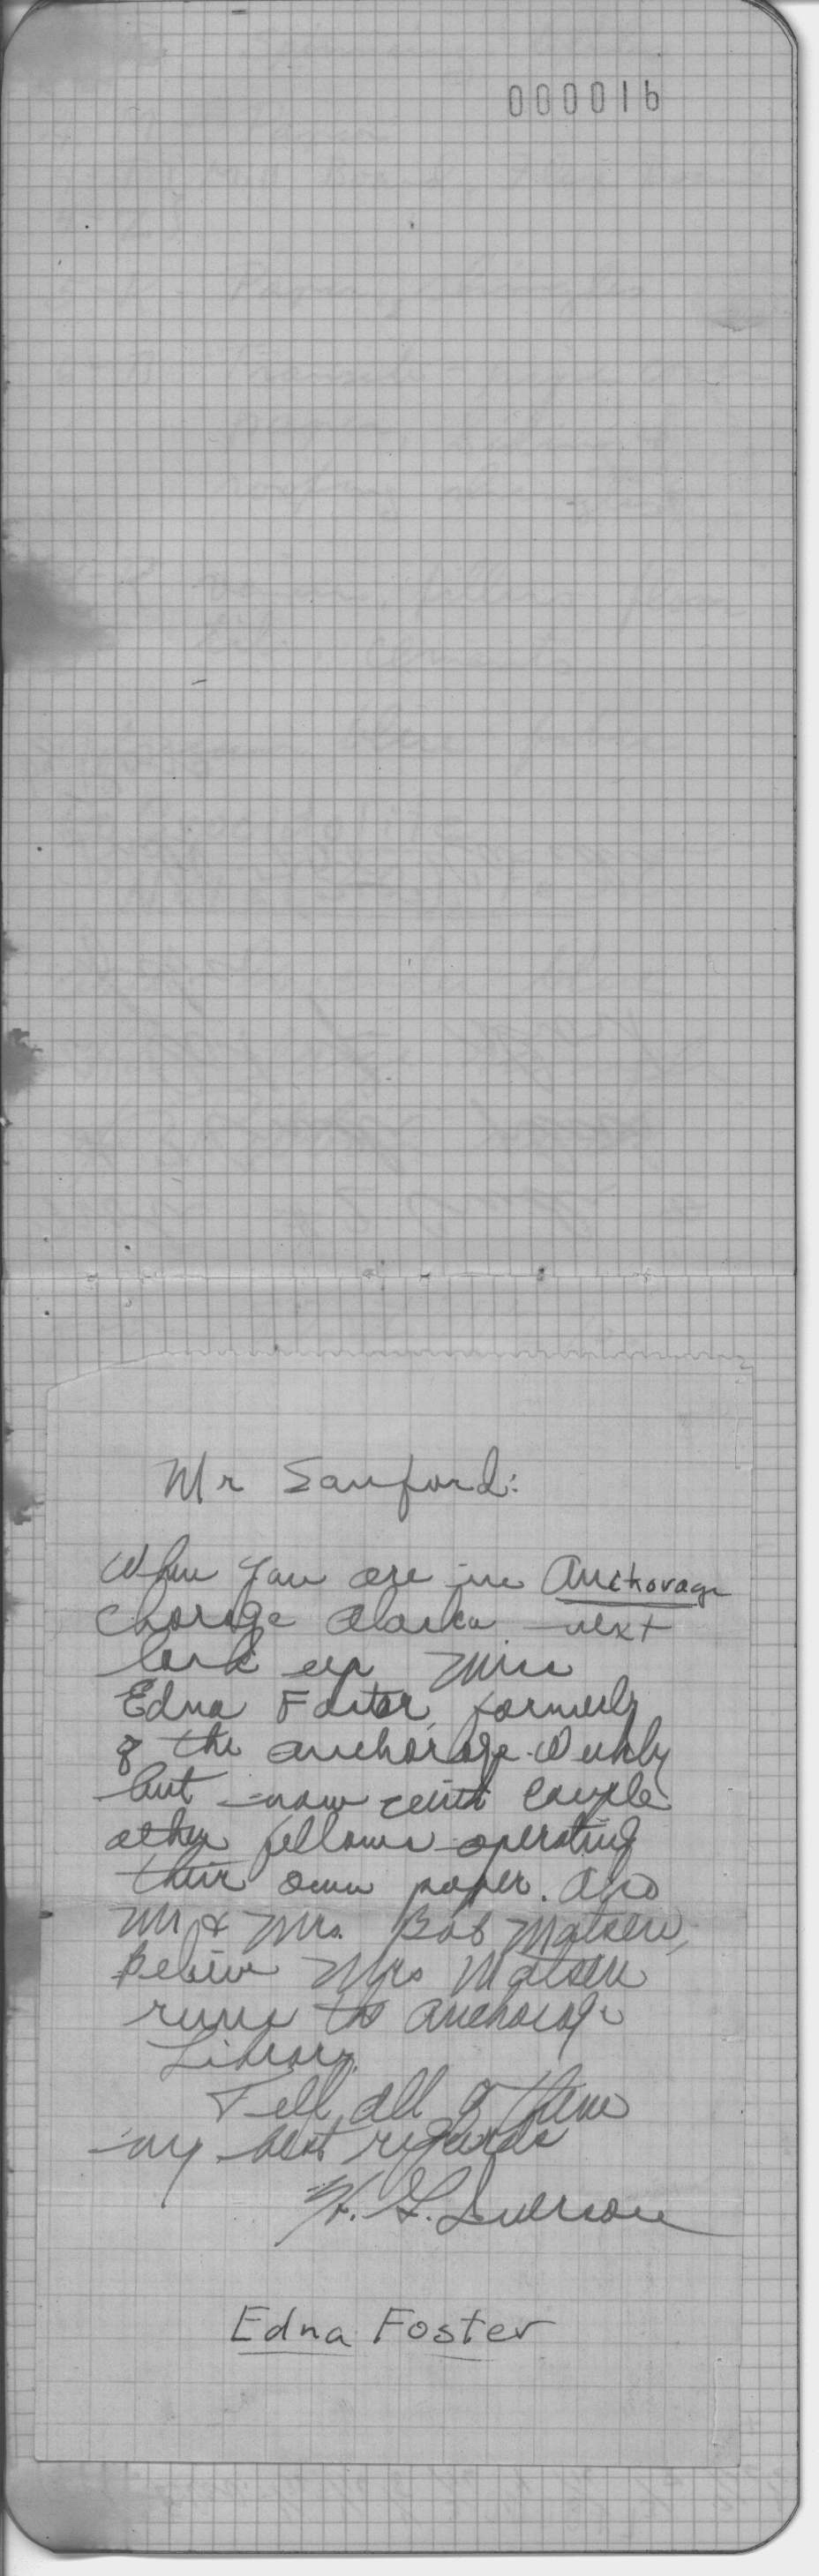 000016
Mr Sanford:
When you are in Anchorage
chorage Alaska next
look up Miss
Edna Foster, formerly
of the anchorage Weekly
but now with couple
other fellows operating
their own paper. Also
Mr & Mrs. Bob Matsen,
Believe Mrs Matsen
runs the anchorage
Library.
Tell all of them
my best regards
H. G.
Edna Foster